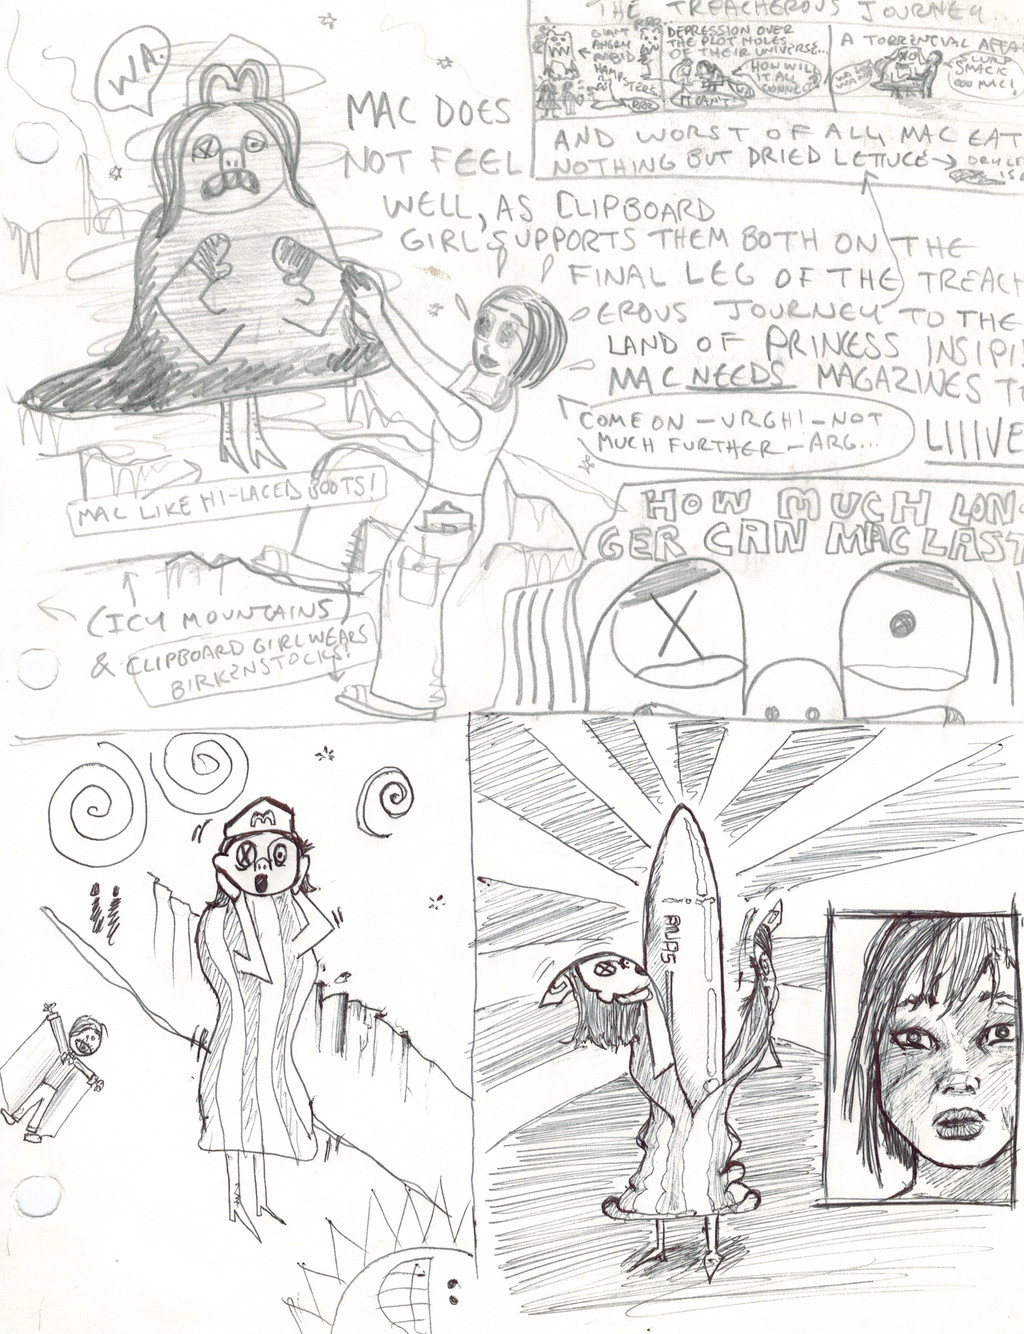 THE TREACHEROUS JOURNEY
GIANT
ANGRY
RABID
RRR
DEPRESSION OVER
THE PLOT HOLES
OF THEIR UNIVERSE...
HOW WILL
IT ALL
CONNECT
IT CAN'T
A TORRENTIAL AFFA
SLURP
SMACK
OOO MAC!
AND WORST OF ALL, MAC EAT
NOTHING BUT DRIED LETTUCE → DRY LE
IS
WA.
MAC DOES
NOT FEEL
WELL, AS CLIPBOARD
GIRL SUPPORTS THEM BOTH ON THE
FINAL LEG OF THE TREACH
EROUS JOURNEY TO THE
LAND OF PRINESS INSIPI
MAC NEEDS MAGAZINES T
LIIIVE
COME ON - URGH! - NOT
MUCH FURTHER - ARG...
MAC LIKE HI-LACED BOOTS!
(ICY MOUNTAINS)
& CLIPBOARD GIRL WEARS
BIRKENSTOCKS!
HOW MUCH LON-
GER CAN MAC LAST
M